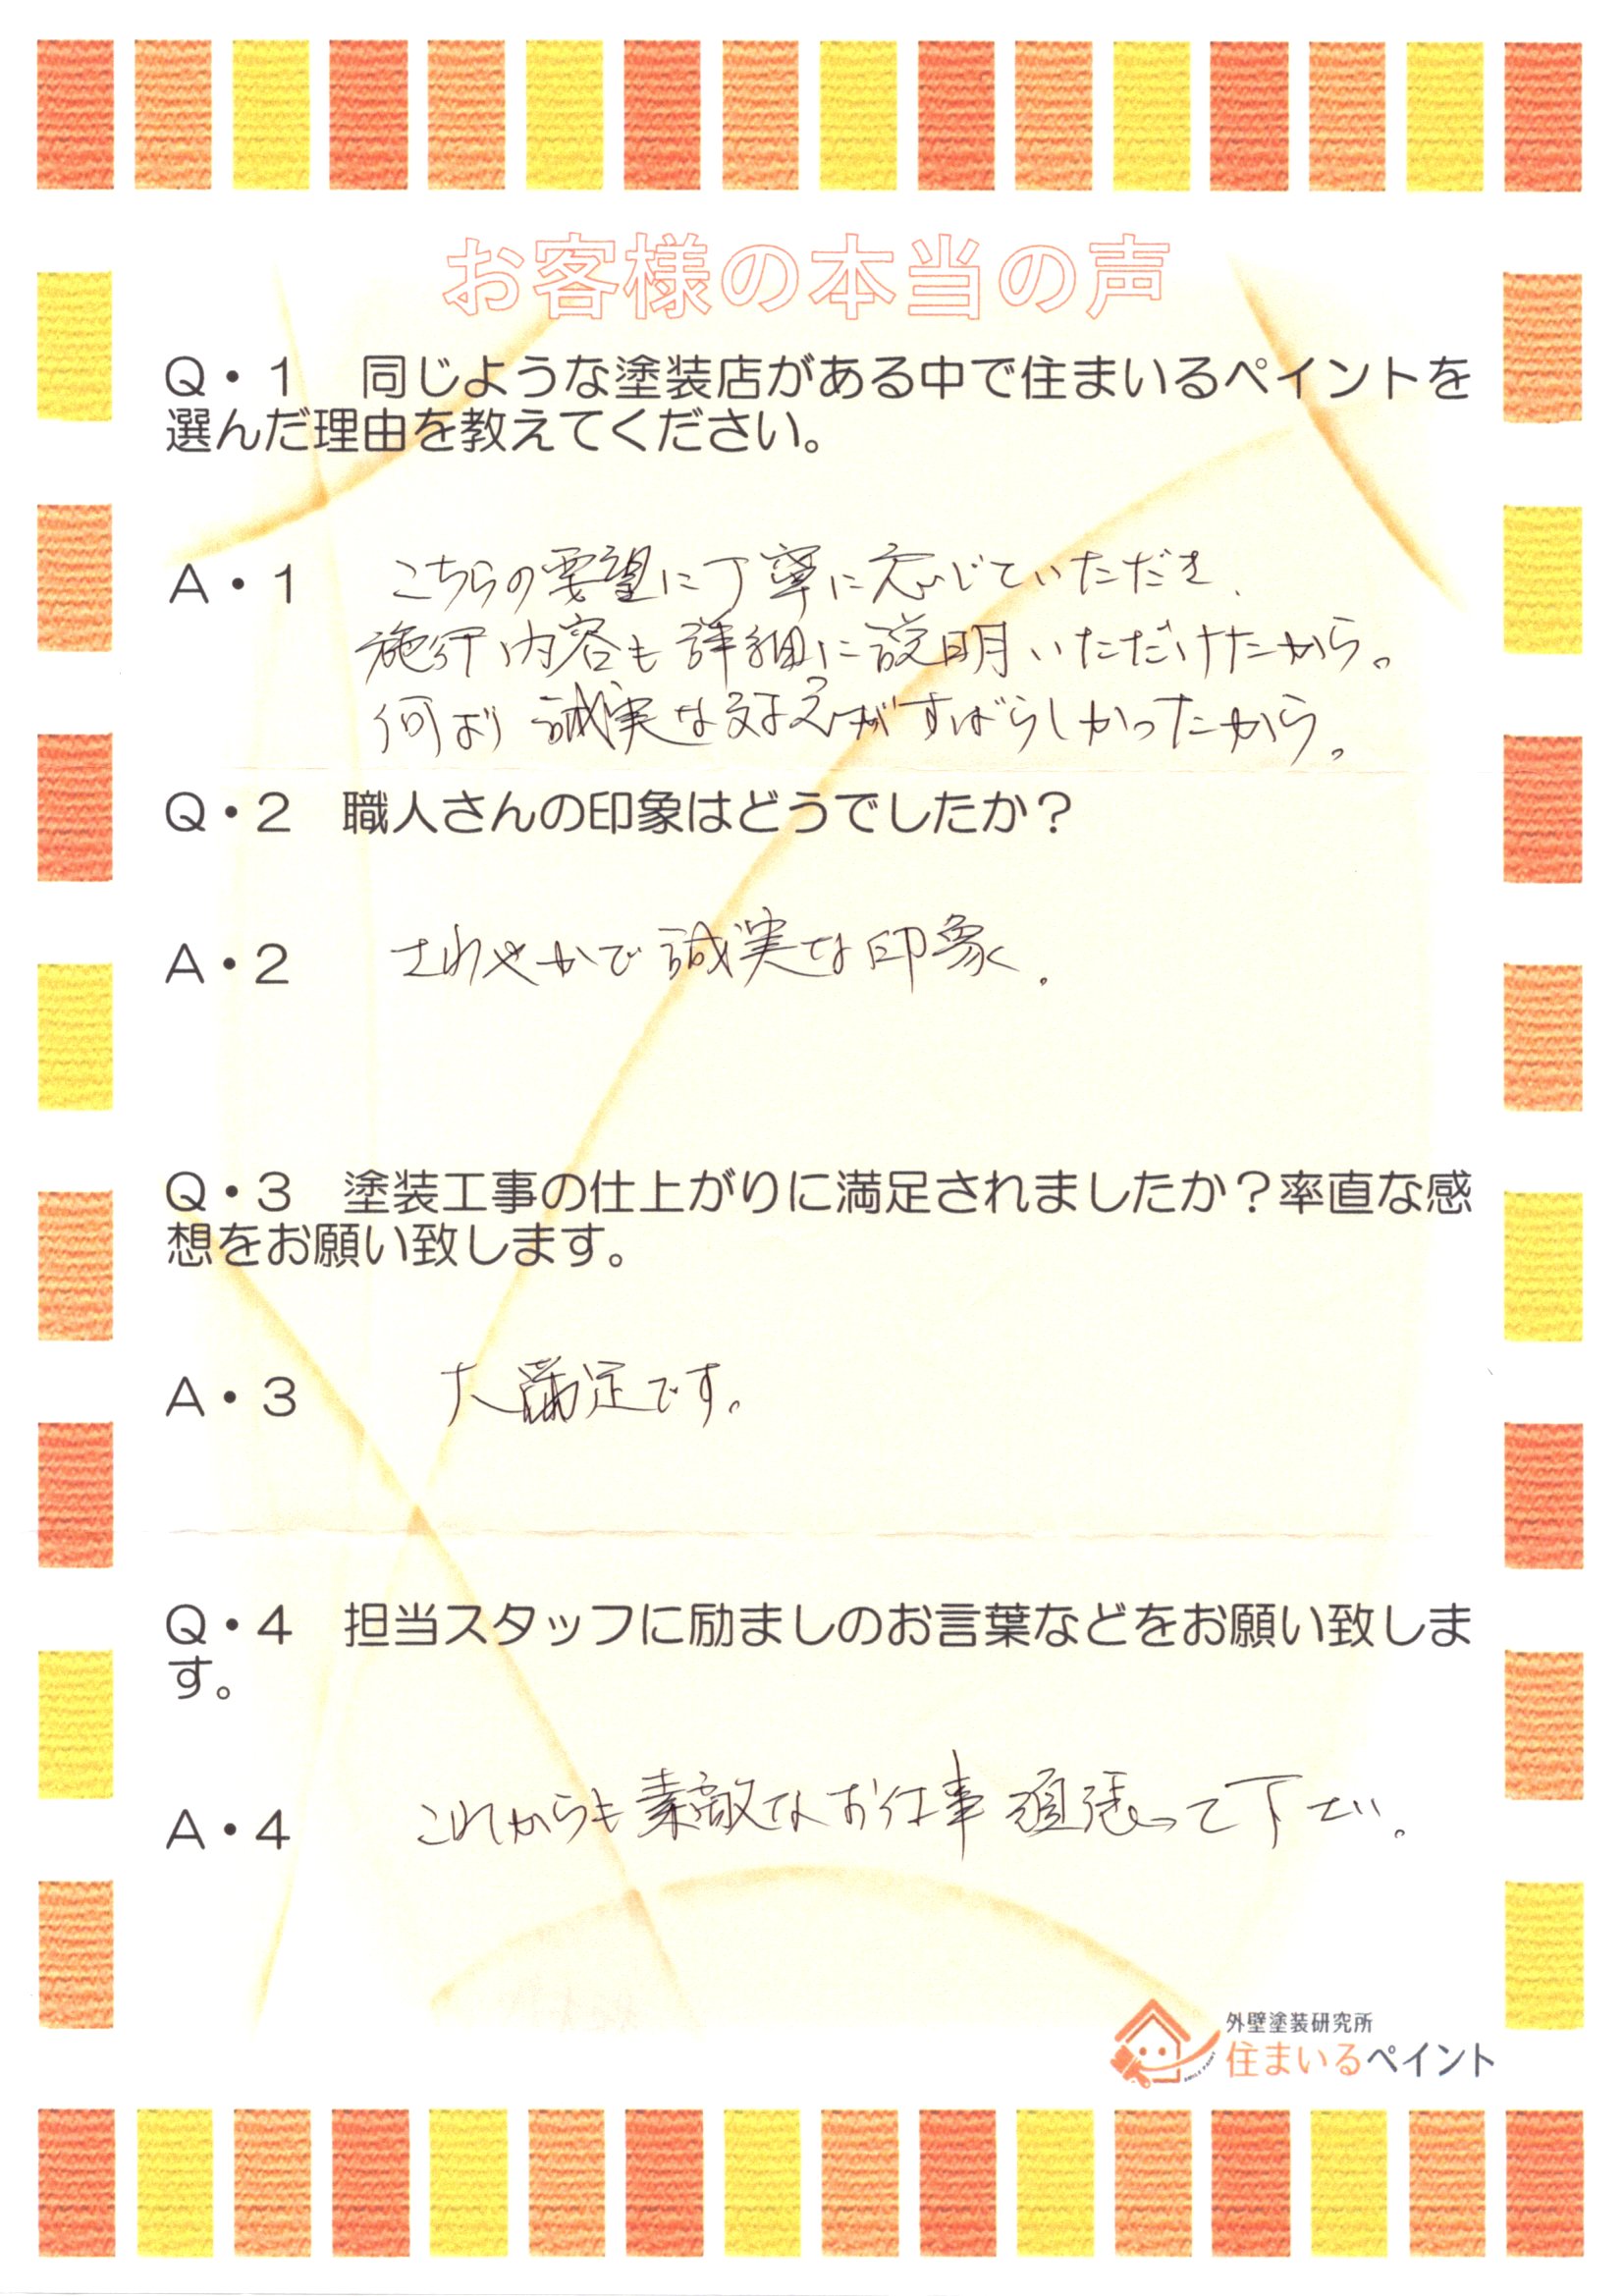 お客様の本当の声
Q・1 同じような塗装店がある中で住まいるペイントを
選んだ理由を教えてください。
A・1 こちらの要望に丁寧に応じていただき、
施行内容も詳細に説明いただけたから。
何より誠実な対応がすばらしかったから。
Q・2 職人さんの印象はどうでしたか？
A・2 さわやかで誠実な印象。
Q・3 塗装工事の仕上がりに満足されましたか？率直な感
想をお願い致します。
A・3 大満足です。
Q・4 担当スタッフに励ましのお言葉などをお願い致しま
す。
A・4 これからも素敵なお仕事頑張って下さい。
外壁塗装研究所
住まいるペイント